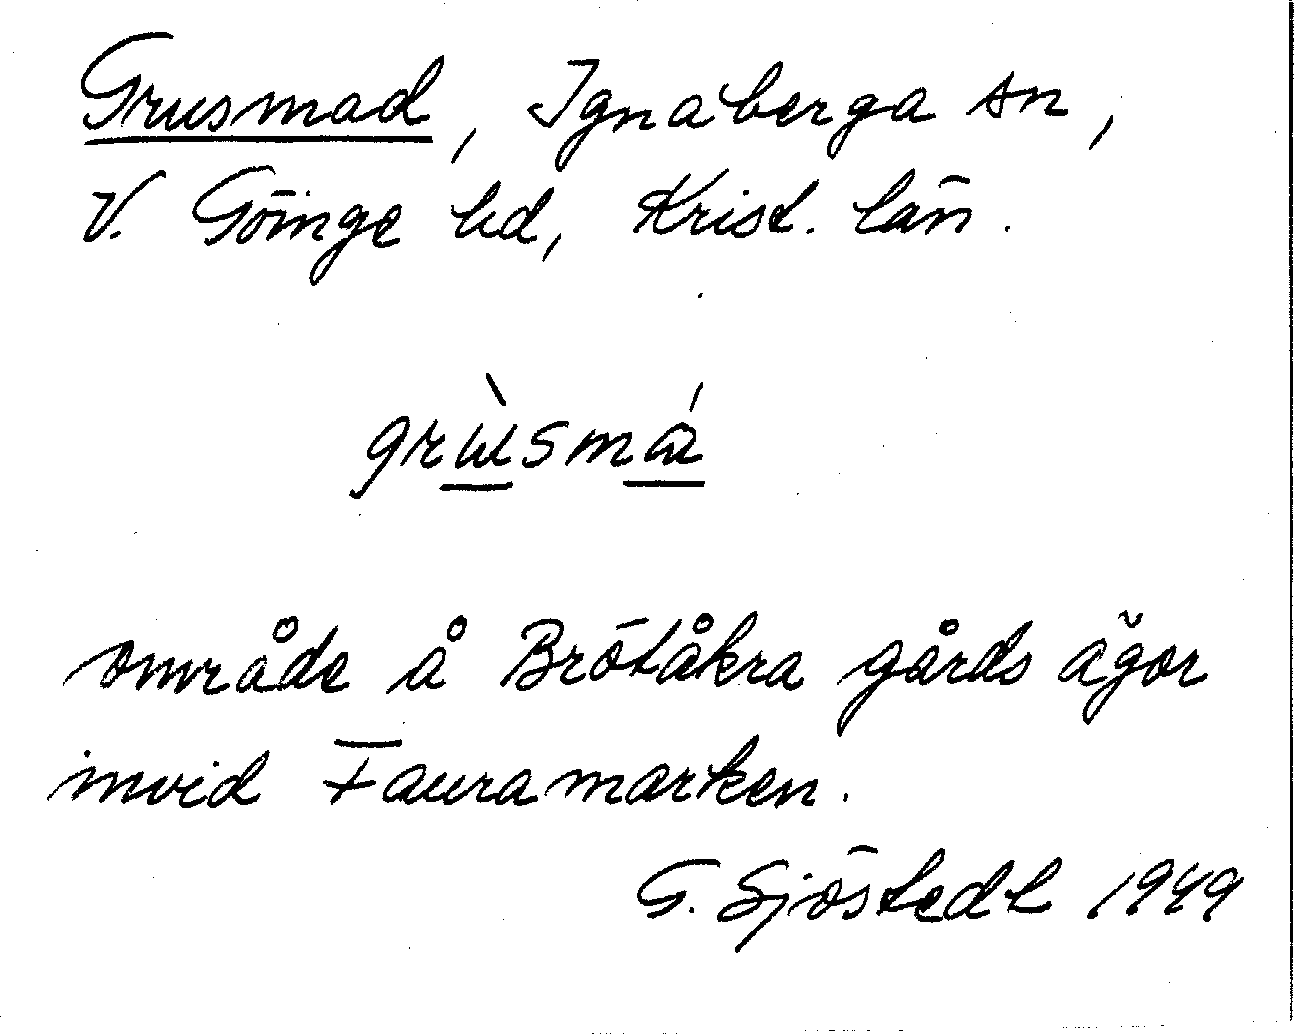 Grusmad, Ignaberga sn,
V. Göinge hd, Krist. län.
grùsmá
område å Brötåkra gårds ägor
invid Fauramarken.
G. Sjöstedt 1949